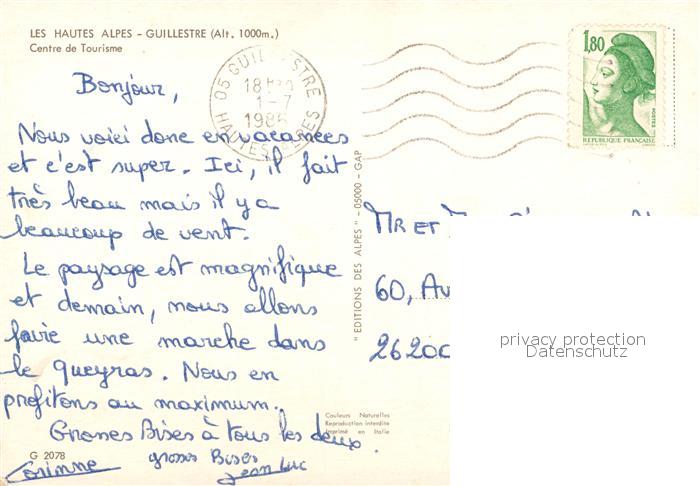 LES HAUTES ALPES - GUILLESTRE (Alt. 1000m.)
Centre de Tourisme
Bonjour,
Nous voici donc en vacances
et c'est super. Ici, il fait
très beau mais il y a
beaucoup de vent.
Le paysage est magnifique
et demain, nous allons
faire une marche dans
le queyras. Nous en
profitons au maximum.
Grosses Bises à tous les deux.
Corinne
grosses Bises
Jean Luc
G 2078
05 GUILLESTRE
1-7
HAUTES ALPES
1,80
POSTES
REPUBLIQUE FRANÇAISE
"EDITIONS DES ALPES" - 05000 - GAP
MR ET
60, Av
26200
privacy protection
Datenschutz
Couleurs Naturelles
Reproduction interdite
Imprimé en Italie